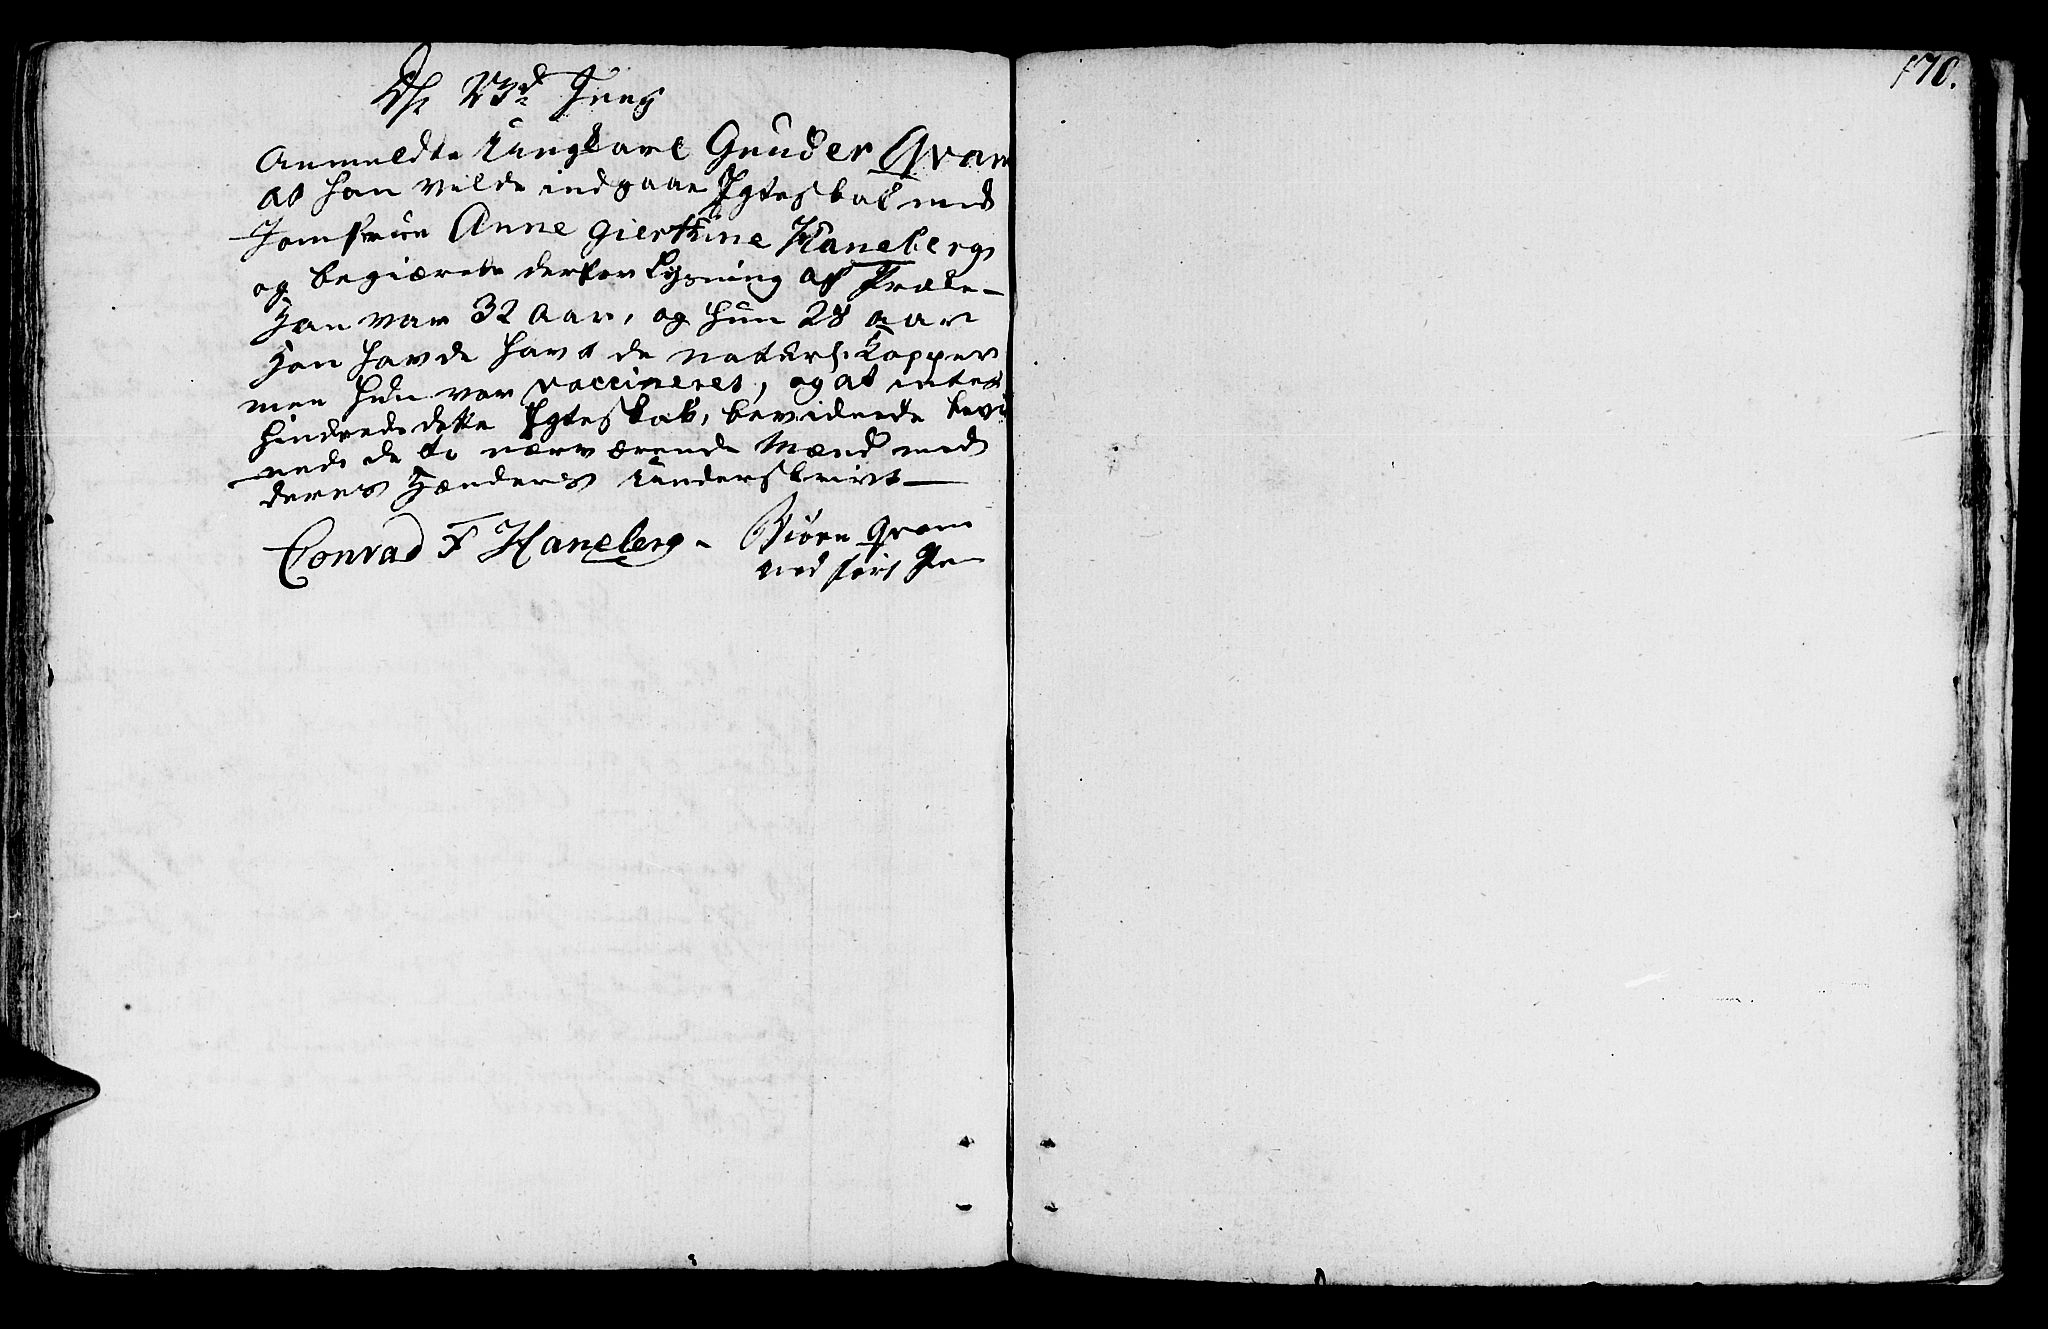 d 23d Juny
Anmeldte Ungkarl Gunder Qvam
at han vilde indgaae Egteskab med
Jomfrue Anne Gierthine Haneberg
og begiærede derfor Lysning af Præke-
Han var 32 Aar, og hun 28 aar
Han havde havt de naturl: Kopper
men hun var vaccineret, og at intet
hindrede dette Egteskab, bevidnede
de to nærværende Mænd med
deres Hænders Underskrivt
Conrad F Haneberg - Biørn Qvam
med ført Pen
170.